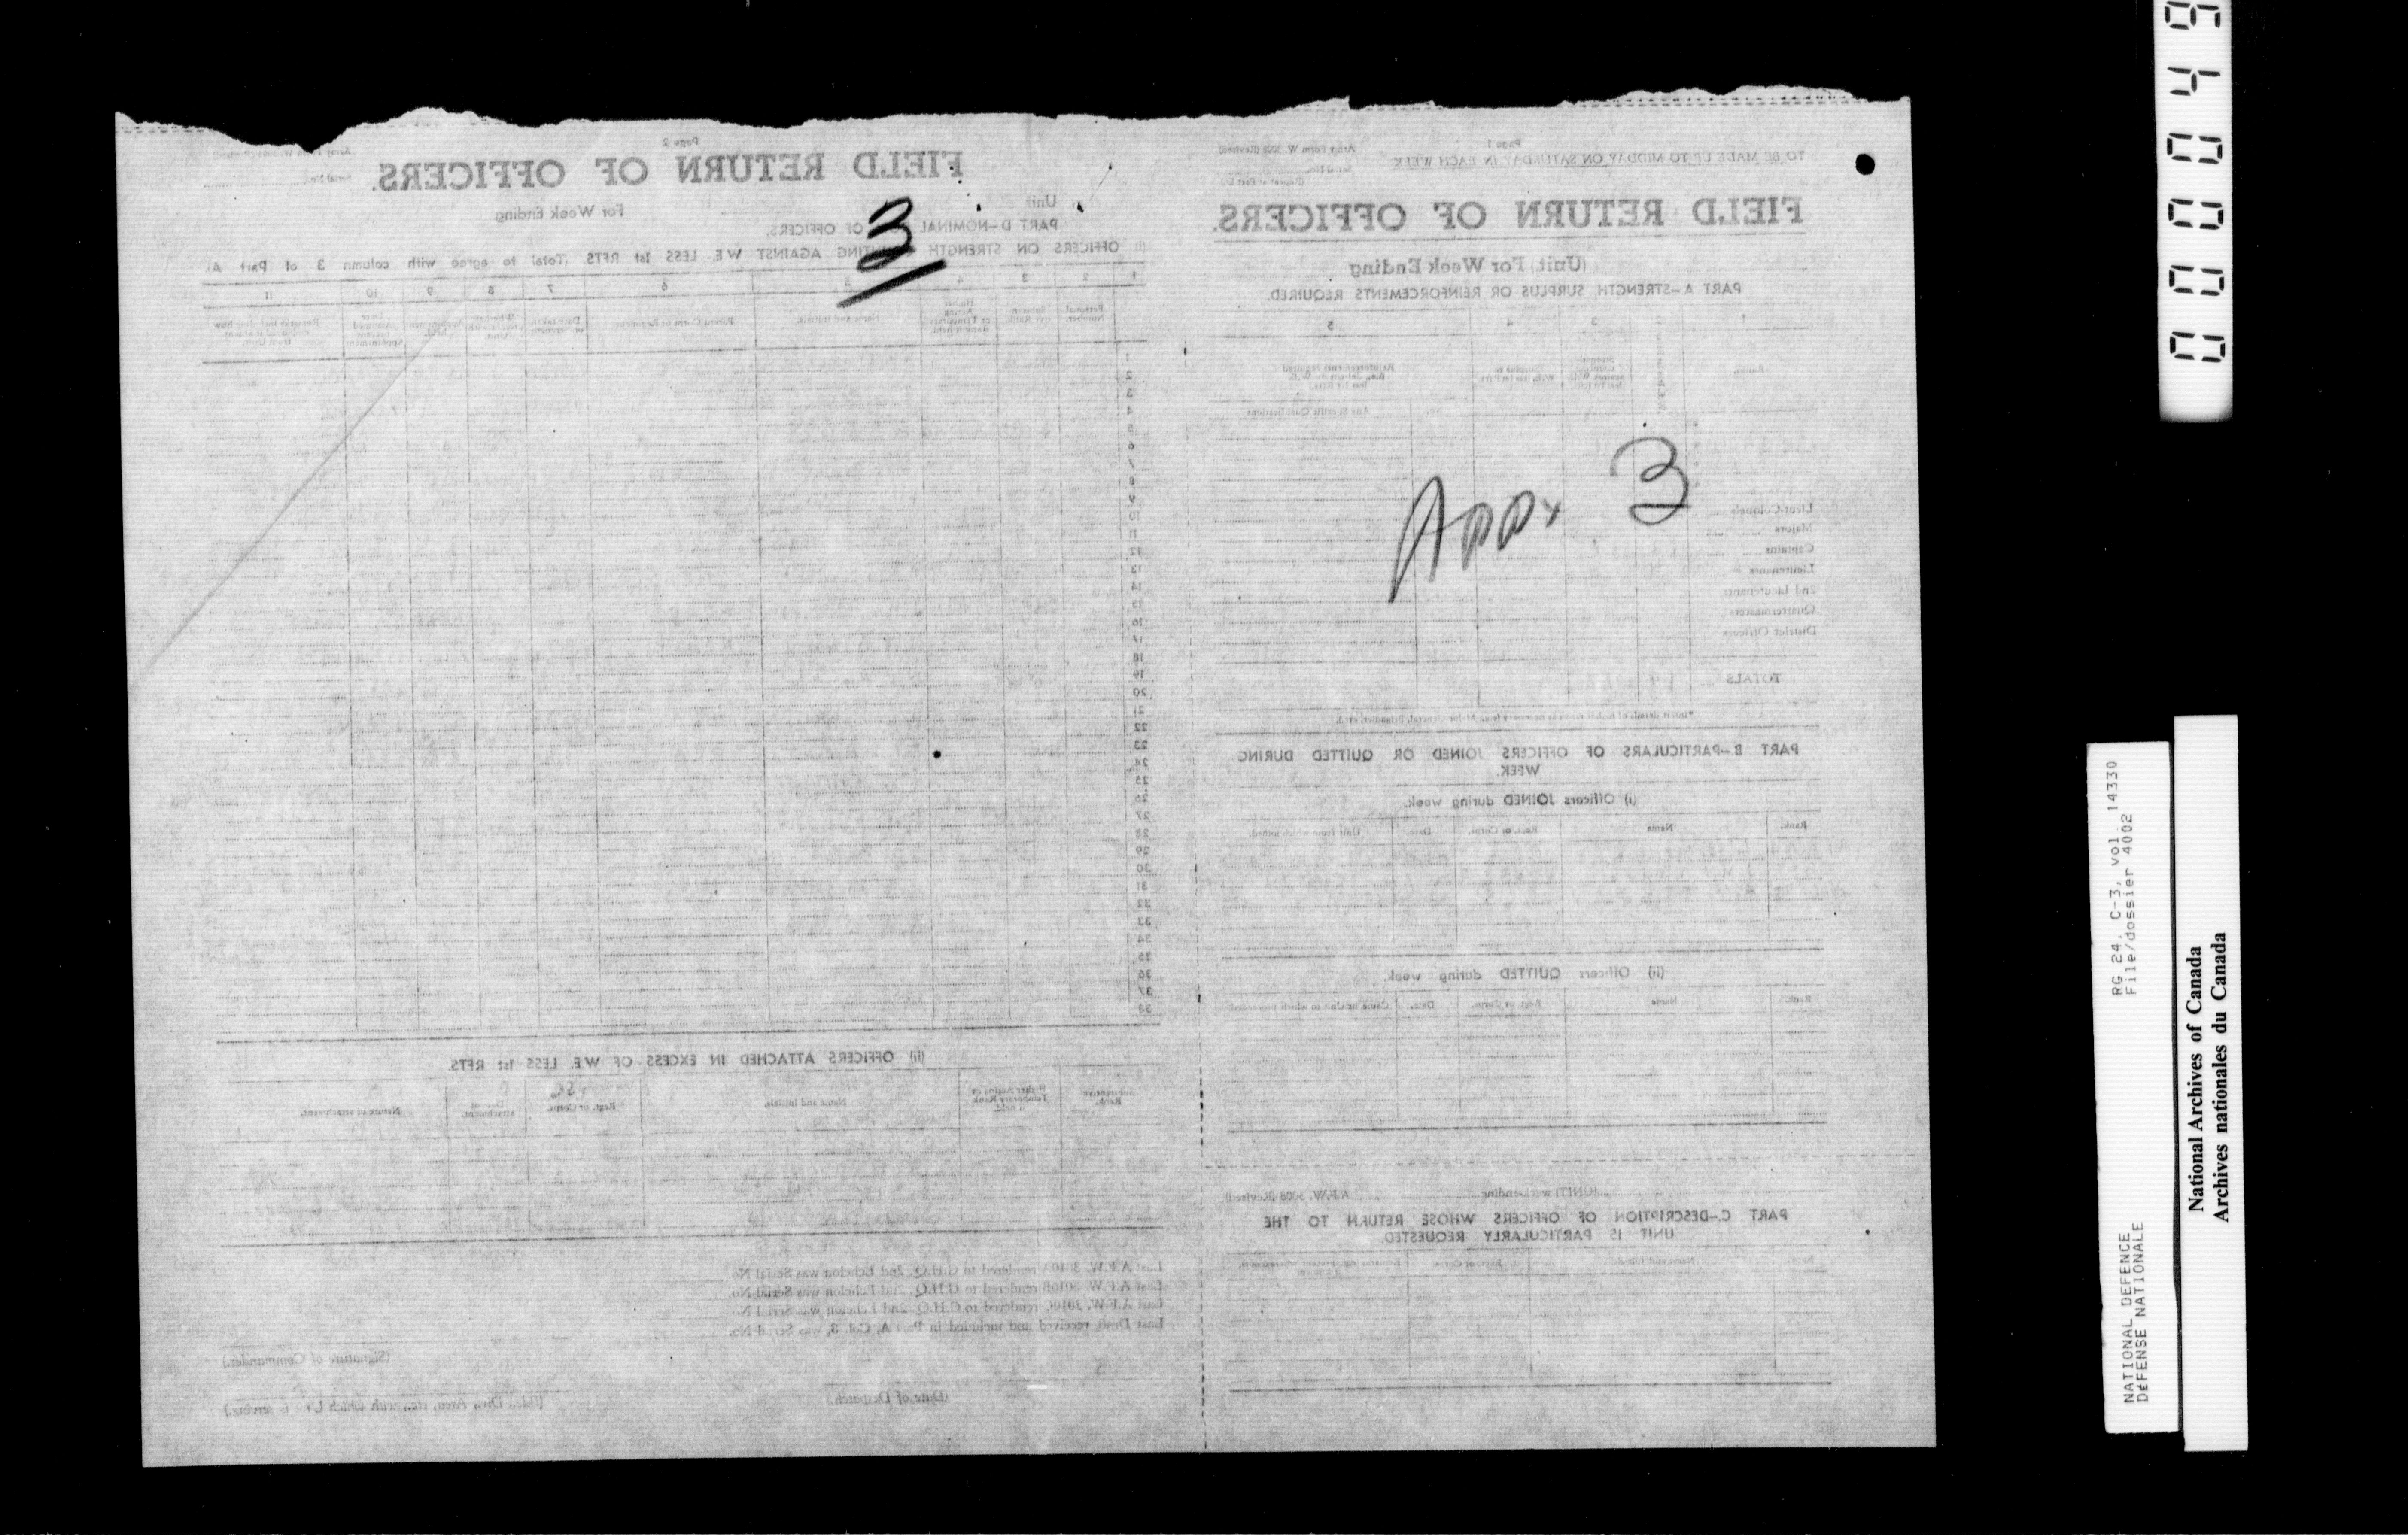 Page 2
FIELD RETURN OF OFFICERS.
Unit
For Week Ending
PART D—NOMINAL OF OFFICERS.
(i) OFFICERS ON STRENGTH AGAINST W.E. LESS 1st RFTS. (Total to agree with column 3 of Part A)
3
1 2 3 4 5 6 7 8 9 10 11
Personal Number.
Name and Initials.
Parent Corps or Regiment.
1
2
3
4
5
6
7
8
9
10
11
12
13
14
15
16
17
18
19
20
21
22
23
24
25
26
27
28
29
30
31
32
33
34
35
36
37
38
(ii) OFFICERS ATTACHED IN EXCESS OF W.E. LESS 1st RFTS.
Substantive Rank.
Higher Acting or Temporary Rank held.
Name and Initials.
Regt. or Corps.
Nature of attachment.
Last A.F.W. 3010A rendered to G.H.Q. 2nd Echelon was Serial No.
Last A.F.W. 3010B rendered to G.H.Q. 2nd Echelon was Serial No.
Last A.F.W. 3010C rendered to G.H.Q. 2nd Echelon was Serial No.
Last Draft received and included in Part A, Col. 3, was Serial No.
(Signature of Commander.)
(Date of Despatch.)
(Bde., Div., Area, etc., with which Unit is serving.)
Page 1
TO BE MADE UP TO MIDDAY ON SATURDAY IN EACH WEEK
Army Form W. 3008 (Revised)
Serial No.
FIELD RETURN OF OFFICERS.
(Unit) For Week Ending
PART A—STRENGTH SURPLUS OR REINFORCEMENTS REQUIRED.
1 2 3 4 5
Rank.
Any Specific Qualifications
Appx 3
Lieut.-Colonels
Majors
Captains
Lieutenants
2nd Lieutenants
Quartermasters
District Officers
TOTALS
PART B—PARTICULARS OF OFFICERS JOINED OR QUITTED DURING
WEEK.
(i) Officers JOINED during week.
Rank. Name Regt. or Corps. Date. Unit from which joined.
(ii) Officers QUITTED during week.
Rank. Name Regt. or Corps. Date.
(UNIT) week ending A.F.W. 3008 (Revised)
PART C.—DESCRIPTION OF OFFICERS WHOSE RETURN TO THE
UNIT IS PARTICULARLY REQUESTED.
00049
NATIONAL DEFENCE RG 24, C-3, vol. 14330
DÉFENSE NATIONALE File/dossier 4002
National Archives of Canada
Archives nationales du Canada